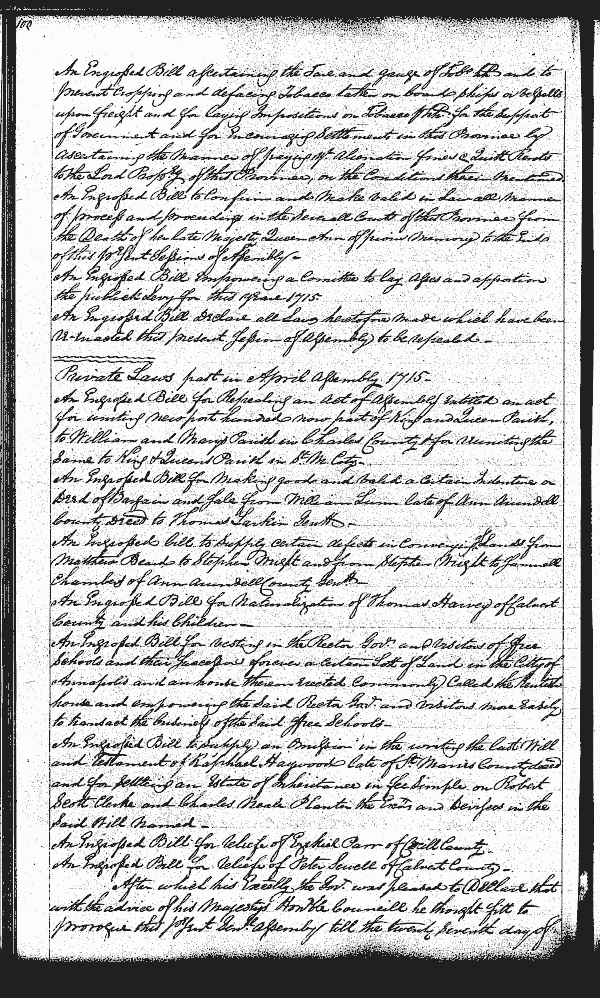 100
An Engrossed Bill ascertaining the Tare and gauge of Tobo hhds and to
prevent Cropping and defacing Tobacco taken on board Ships or Vessells
upon freight and for laying Impositions on Tobacco hhd for the Support
of Government and for Encouraging Settlement in this Province by
ascertaining the Manner of paying Alienation fines & Quitt Rents
to the Lord Propry of this Province, on the Conditions therein Mentioned
An Engrossed Bill to Confirm and Make Valid in Law all Manner
of process and proceedings in the Severall Courts of this Province from
the Death of her late Majesty Queen Ann of pious Memory to the End
of this present Sessions of Assembly -
An Engrossed Bill Empowering a Comittee to Lay Asses and apportion
the publick Levy for this year 1715
An Engrossed Bill declare all Laws heretofore made which have been
re-enacted this present Session of Assembly to be repealed -
Private Laws past in April Assembly 1715 -
An Engrossed Bill for Repealing an Act of Assembly Entitled an act
for uniting newport hundred now part of King and Queen Parish,
to William and Mary Parish in Charles County & for reuniting the
Same to King & Queens Parish in St M. Coty -
An Engrossed Bill for Making good and valid a Certain Indenture or
Deed of Bargain and Sale from William Lunn late of Ann Arundell
County decd to Thomas Larkin Gentn -
An Engrossed bill to Supply certain defects in Conveying Lands from
Matthew Beard to Stephen Wright and from Stephen Wright to Samuell
Chambers of Ann Arundell County Gentn -
An Engrossed Bill for Naturalization of Thomas Harvey of Calvert
County and his Children -
An Engrossed Bill for vesting in the Rector Govr and Visitors of ffree
Schools and their Successrs forever a certain Lott of Land in the City of
Annapolis and an house therein erected Commonly Called the Kentish
house and empowering the Said Rector Govr and Visitors more Easily
to transact the business of the Said ffree Schools -
An Engrossed Bill to Supply an Omission in the writing the Last Will
and Testament of Raphael Haywood late of St Maries County decd
and for Settling an Estate of Inheritance in fee Simple on Robert
Scott Clerke and Charles Neale Planter the Exrs and Devisees in the
Said Will Named -
An Engrossed Bill for reliefe of Ezekiel Parr of Cecill County -
An Engrossed Bill for reliefe of Peter Sewell of Calvert County -
After which his Excelly the Govr was pleased to Declare that
with the advice of his Majestys Honble Councill he thought fitt to
prorogue this present Genll Assembly till the twenty Seventh day of